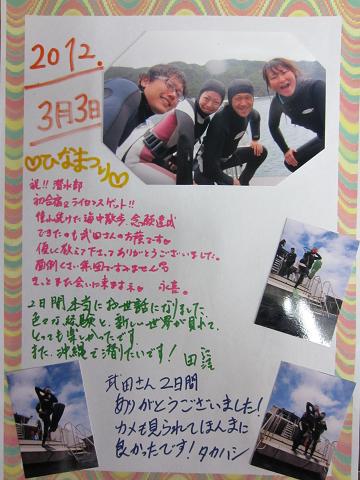 2012.
3月3日
♡ひなまつり♡
祝!! 潜水部
初合宿 ライセンスゲット!!
海中散歩、念願達成
できたのも武田さんのお陰です♡
優しく教えて下さってありがとうございました。
面倒くさい集団ですみません
きっとまた会いに来ます
2日間本当にお世話になりました。
色々な経験と、新しい世界が見れて、
とっても楽しかったです!
また、沖縄で潜りたいです! 田窪
武田さん 2日間
ありがとうございました!
カメも見られてほんまに
良かったです! タカハシ